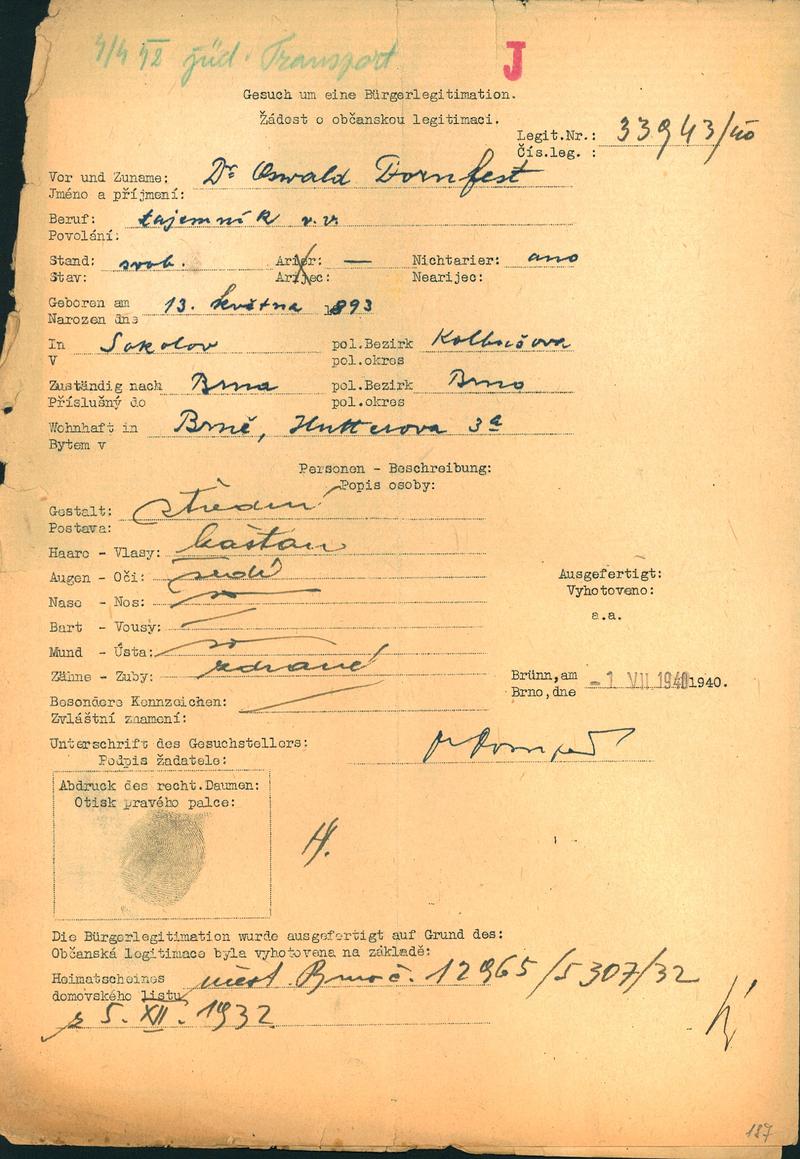 4/4 42 jüd. Transport
J
Gesuch um eine Bürgerlegitimation.
Žádost o občanskou legitimaci.
Legit.Nr.: 33943/40
Čís.leg. :
Vor und Zuname: Dr Oswald Dornfest
Jméno a příjmení:
Beruf: tajemník v.v.
Povolání:
Stand: svob. Arier: — Nichtarier: ano
Stav: Arijec: Nearijec:
Geboren am 13. května 1893
Narozen dne
In Sokolov pol.Bezirk Kolbušova
V pol.okres
Zuständig nach Brna pol.Bezirk Brno
Příslušný do pol.okres
Wohnhaft in Brně, Hutterova 3a
Bytem v
Personen - Beschreibung:
Popis osoby:
Gestalt: střední
Postava:
Haare - Vlasy: kaštan
Augen - Oči: šedé
Nase - Nos:
Bart - Vousy:
Mund - Ústa:
Zähne - Zuby: zdravé
Ausgefertigt:
Vyhotoveno:
a.a.
Brünn,am -1 VII 1940 1940.
Brno,dne
Besondere Kennzeichen:
Zvláštní znamení:
Unterschrift des Gesuchstellers:
Podpis žadatele:
Abdruck des recht.Daumen:
Otisk pravého palce:
Die Bürgerlegitimation wurde ausgefertigt auf Grund des:
Občanská legitimace byla vyhotovena na základě:
Heimatscheines měst. Brno č. 12965/5307/32
domovského listu
z 5. XII. 1932
187